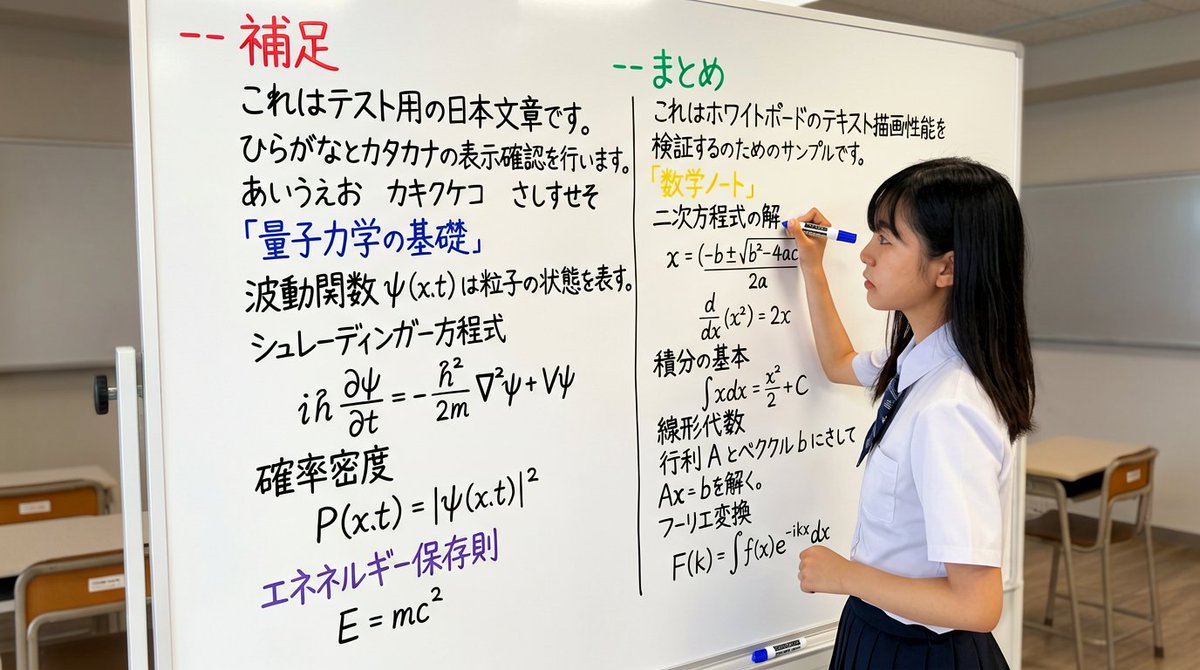 -- 補足
これはテスト用の日本文章です。
ひらがなとカタカナの表示確認を行います。
あいうえお カキクケコ さしすせそ
「量子力学の基礎」
波動関数 ψ(x.t) は粒子の状態を表す。
シュレーディンガー方程式
iℏ ∂ψ/∂t = -ℏ²/2m ∇²ψ + Vψ
確率密度
P(x.t) = |ψ(x.t)|²
エネネルギー保存則
E = mc²
-- まとめ
これはホワイトボードのテキスト描画性能を
検証するのためのサンプルです。
「数学ノート」
二次方程式の解
x = (-b ± √b²-4ac / 2a
d/dx (x²) = 2x
積分の基本
∫xdx = x²/2 + C
線形代数
行利 A とベククル b にさして
Ax = b を解く。
フーリエ変換
F(k) = ∫f(x)e^-ikx dx